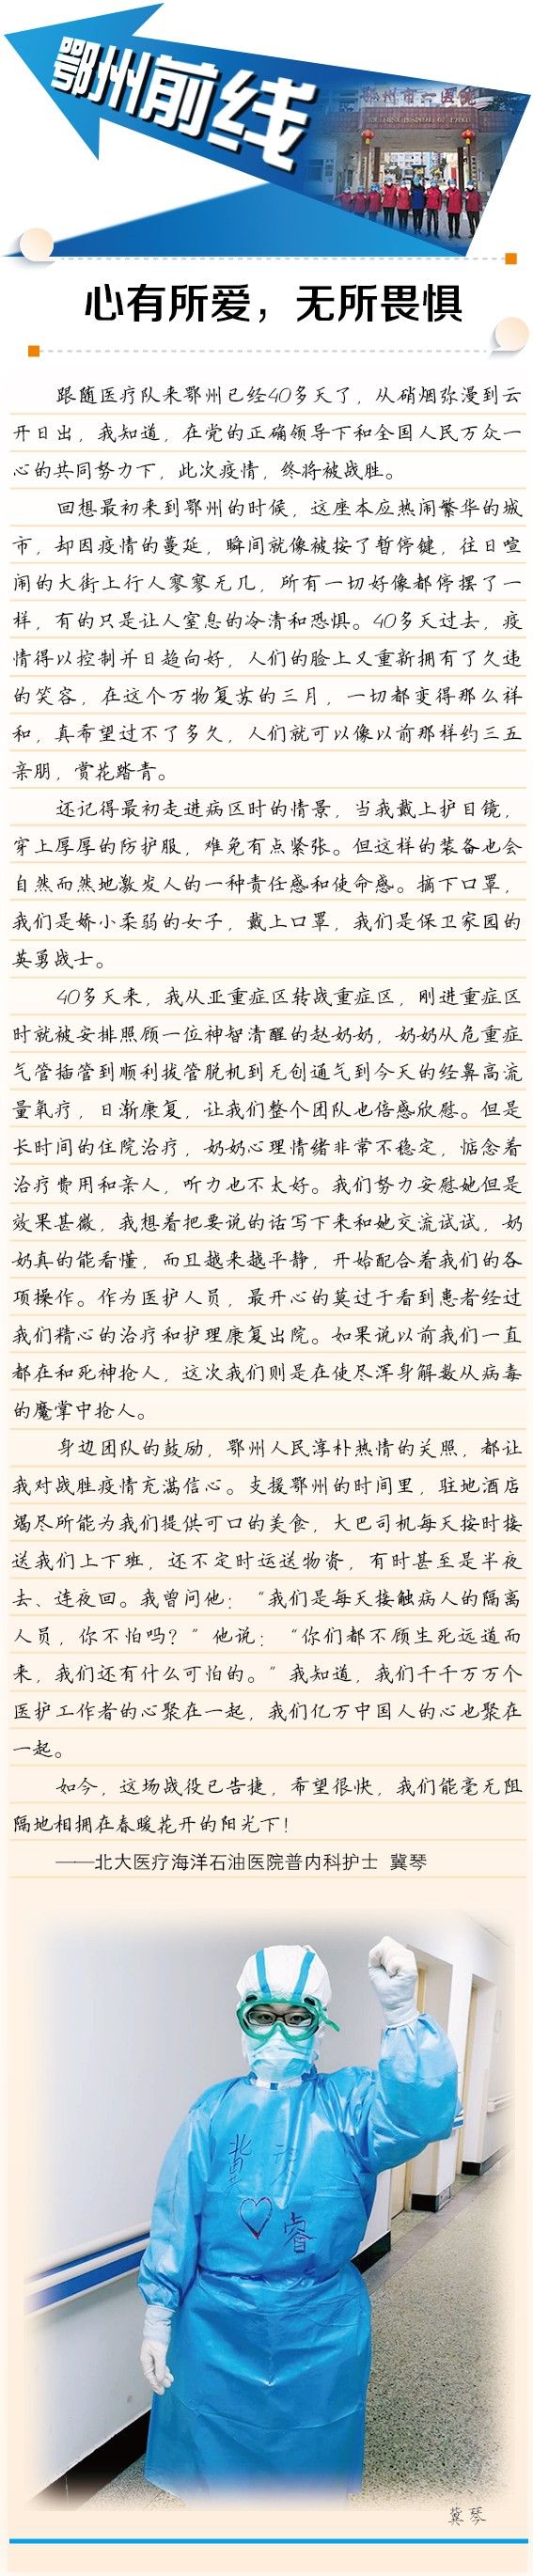 鄂州前线
鄂州市一医院
心有所爱，无所畏惧
跟随医疗队来鄂州已经40多天了，从硝烟弥漫到云
开日出，我知道，在党的正确领导下和全国人民万众一
心的共同努力下，此次疫情，终将被战胜。
回想最初来到鄂州的时候，这座本应热闹繁华的城
市，却因疫情的蔓延，瞬间就像被按了暂停键，往日喧
闹的大街上行人寥寥无几，所有一切好像都停摆了一
样，有的只是让人窒息的冷清和恐惧。40多天过去，疫
情得以控制并日趋向好，人们的脸上又重新拥有了久违
的笑容，在这个万物复苏的三月，一切都变得那么祥
和，真希望过不了多久，人们就可以像以前那样约三五
亲朋，赏花踏青。
还记得最初走进病区时的情景，当我戴上护目镜，
穿上厚厚的防护服，难免有点紧张。但这样的装备也会
自然而然地激发人的一种责任感和使命感。摘下口罩，
我们是娇小柔弱的女子，戴上口罩，我们是保卫家园的
英勇战士。
40多天来，我从亚重症区转战重症区，刚进重症区
时就被安排照顾一位神智清醒的赵奶奶，奶奶从危重症
气管插管到顺利拔管脱机到无创通气到今天的经鼻高流
量氧疗，日渐康复，让我们整个团队也倍感欣慰。但是
长时间的住院治疗，奶奶心理情绪非常不稳定，惦念着
治疗费用和亲人，听力也不太好。我们努力安慰她但是
效果甚微，我想着把要说的话写下来和她交流试试，奶
奶真的能看懂，而且越来越平静，开始配合着我们的各
项操作。作为医护人员，最开心的莫过于看到患者经过
我们精心的治疗和护理康复出院。如果说以前我们一直
都在和死神抢人，这次我们则是在使尽浑身解数从病毒
的魔掌中抢人。
身边团队的鼓励，鄂州人民淳朴热情的关照，都让
我对战胜疫情充满信心。支援鄂州的时间里，驻地酒店
竭尽所能为我们提供可口的美食，大巴司机每天按时接
送我们上下班，还不定时运送物资，有时甚至是半夜
去、连夜回。我曾问他：“我们是每天接触病人的隔离
人员，你不怕吗？”他说：“你们都不顾生死远道而
来，我们还有什么可怕的。”我知道，我们千千万万个
医护工作者的心聚在一起，我们亿万中国人的心也聚在
一起。
如今，这场战役已告捷，希望很快，我们能毫无阻
隔地相拥在春暖花开的阳光下！
——北大医疗海洋石油医院普内科护士 冀琴
冀琴
睿
冀琴